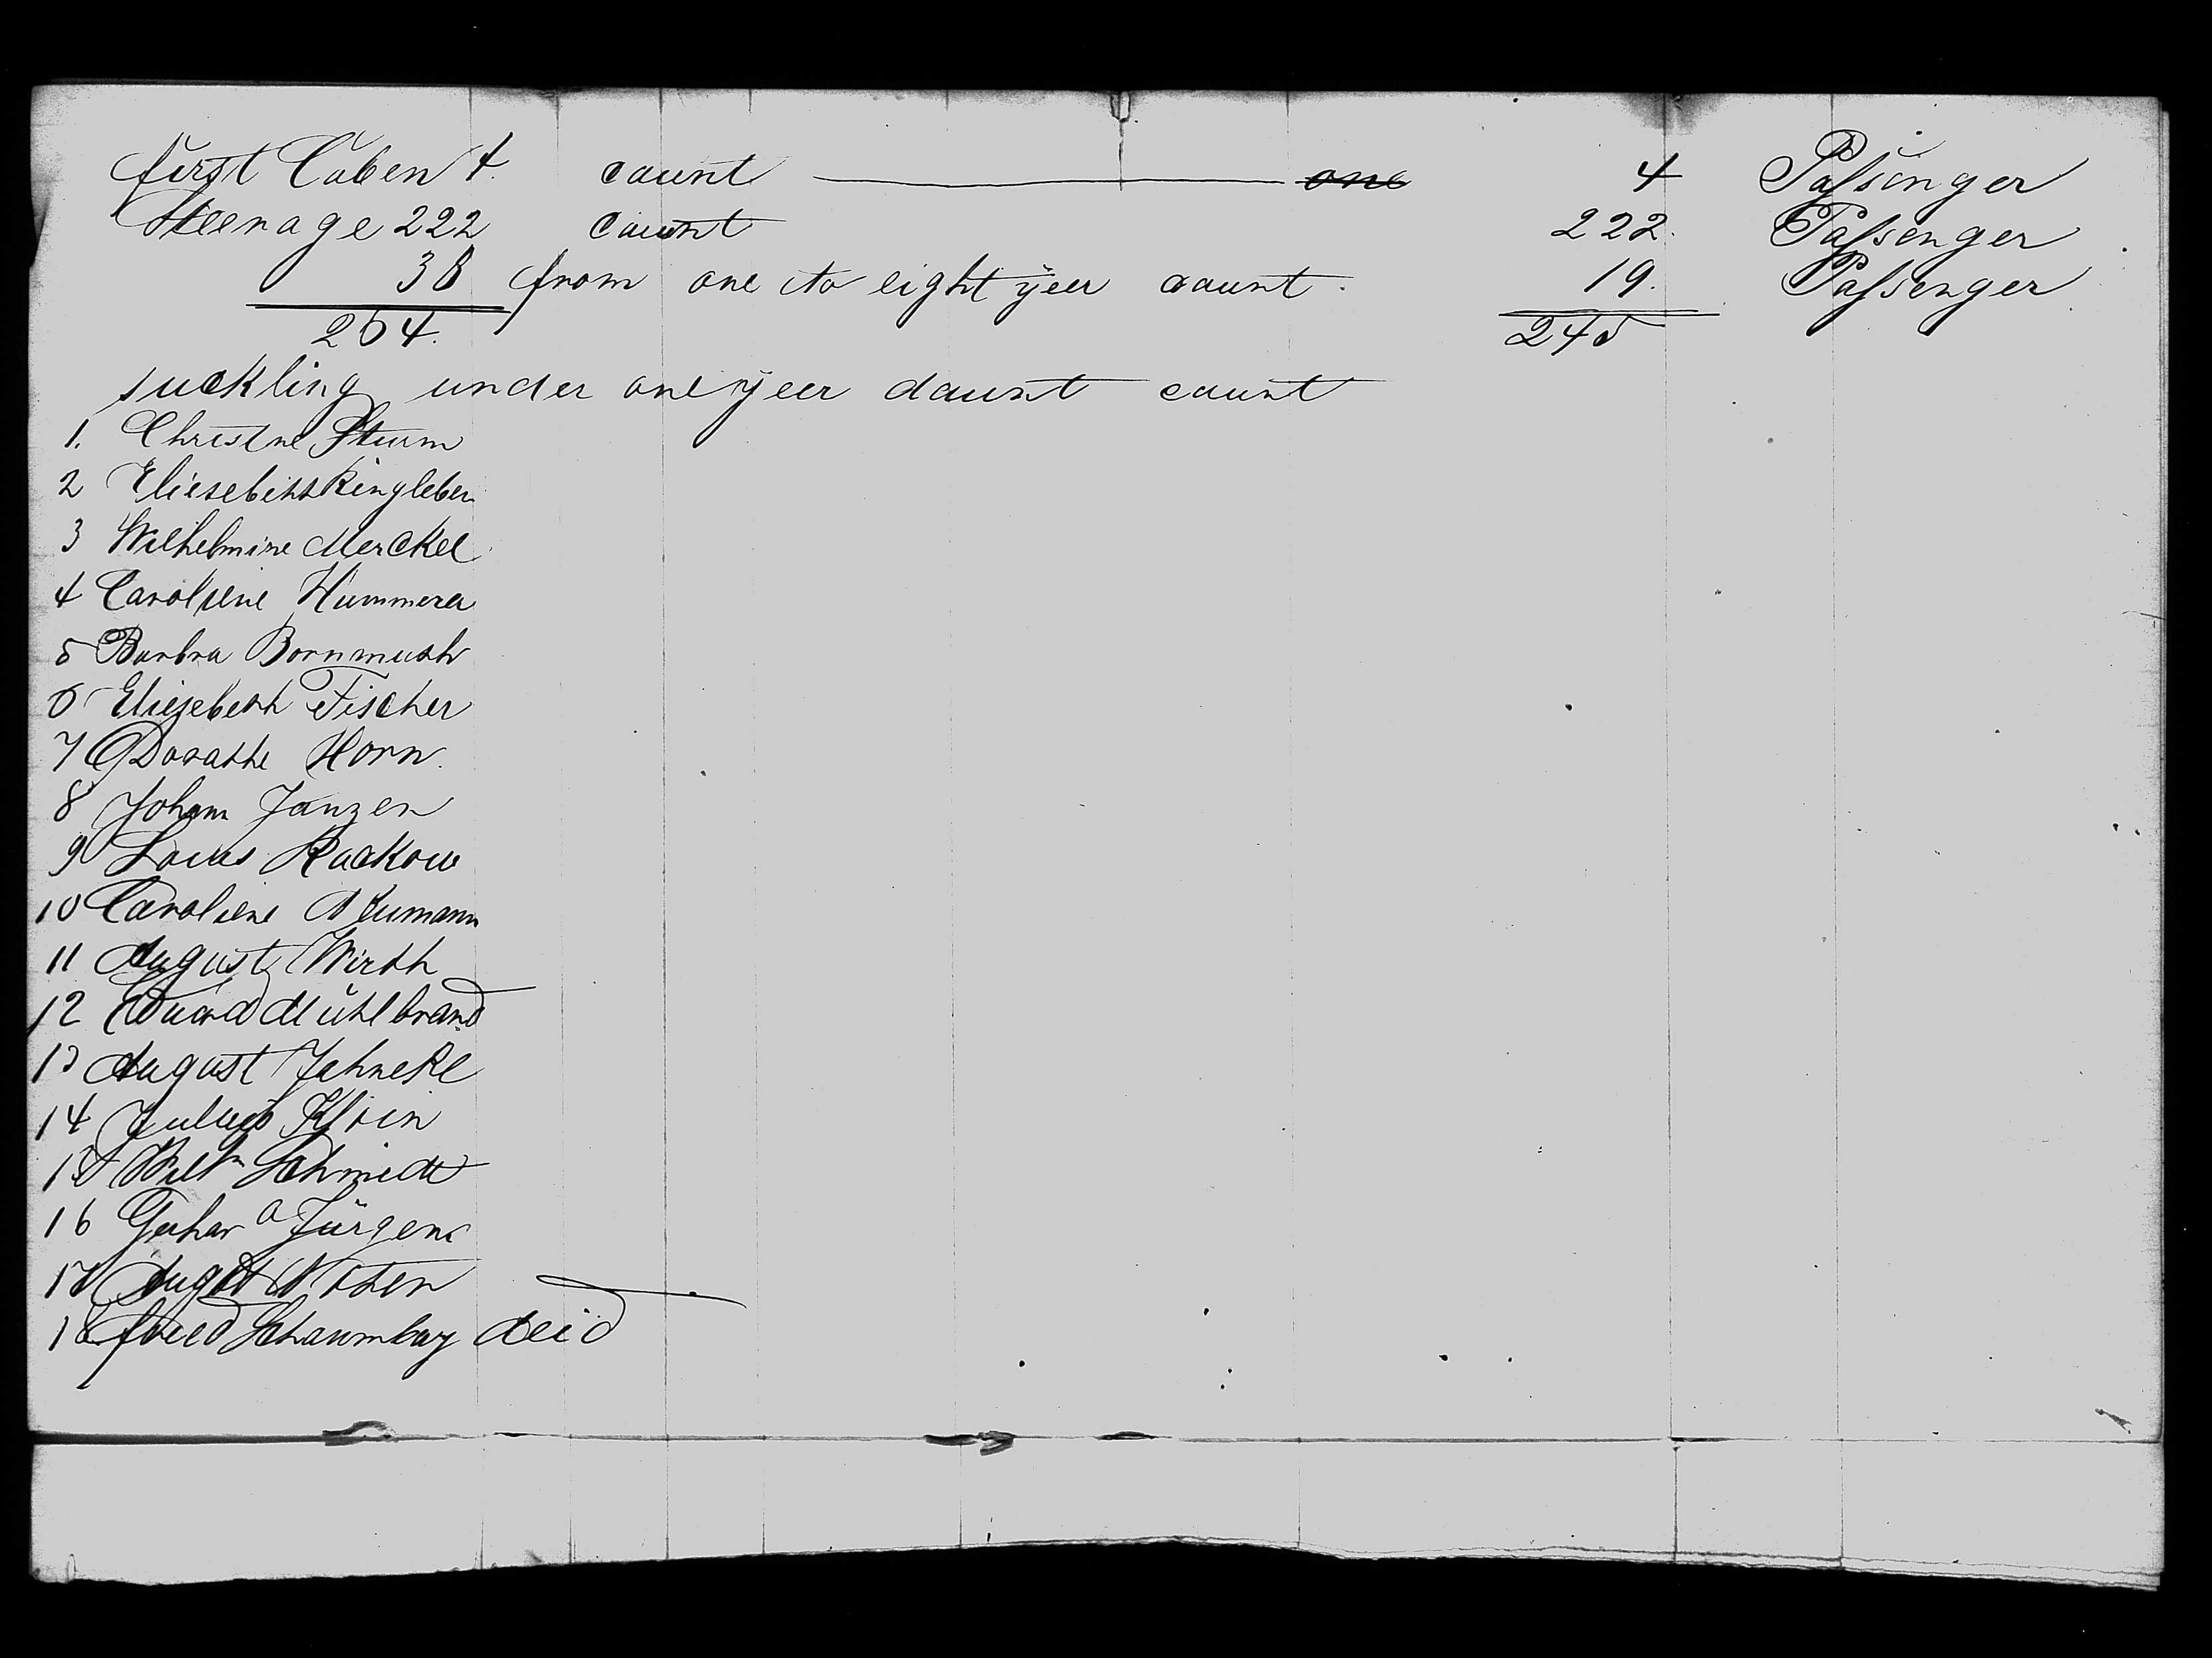 first Caben 4. caunt one 4 Passinger
Steerage 222 caunt 222. Passenger
38 from one to eight yeer caunt. 19. Passenger
264. 245
suckling under one yeer daunt caunt
1. Christne Sturm
2 Eliesebeth Ringleben
3 Wilhelmine Merckel
4 Caroliene Hummerer
5 Barbra Bornmuth
6 Eliesebeth Fischer
7 Dorathe Horn.
8 Johann Janzen
9 Louis Rackow
10 Caroliene Neumann
11 August Wirth
12 Eduard Mühlbrand
13 August Jahneke
14 Julius Klein
15 Wilhm Schmidt
16 Gerhard Jürgens
17 August
18 fried Schaumbury deid